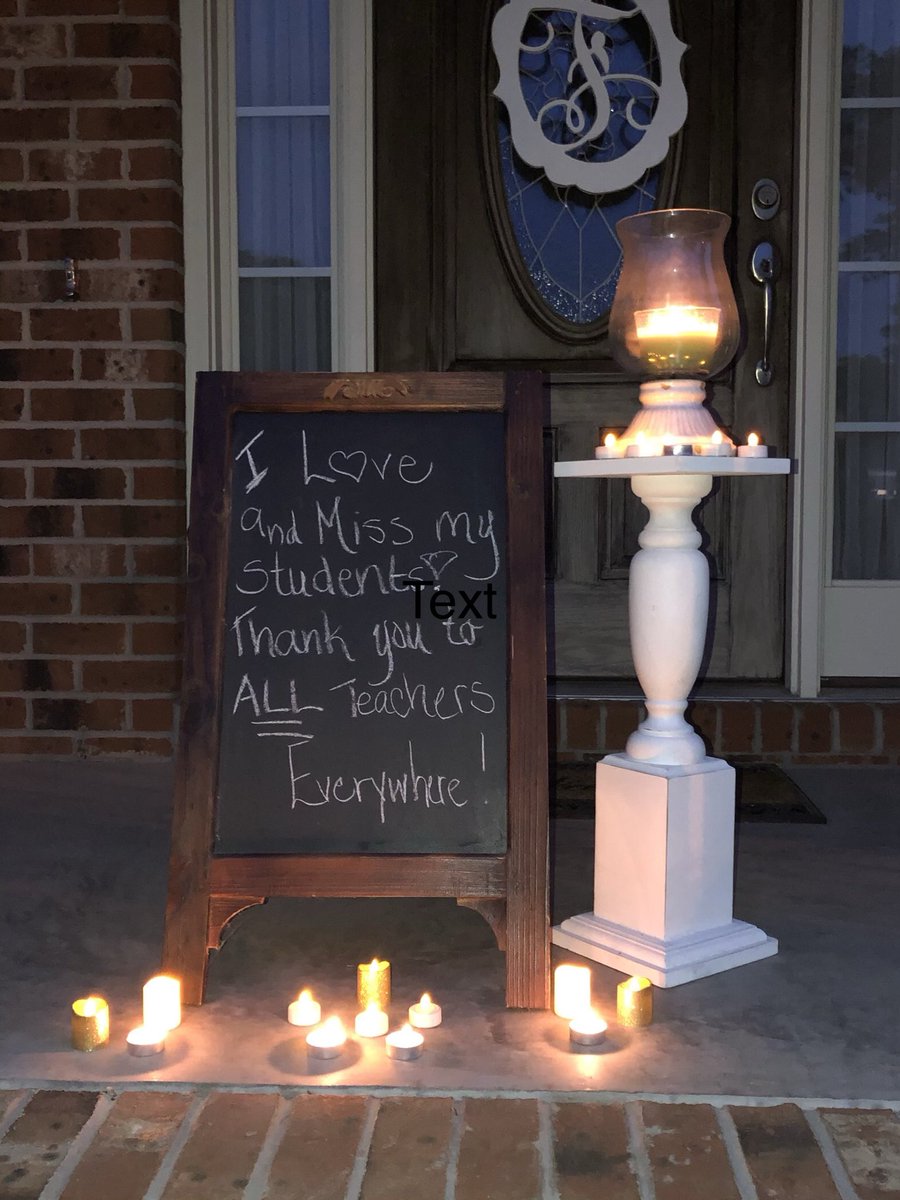 I Love
and Miss my
students♡
Text
Thank you to
ALL Teachers
Everywhere!